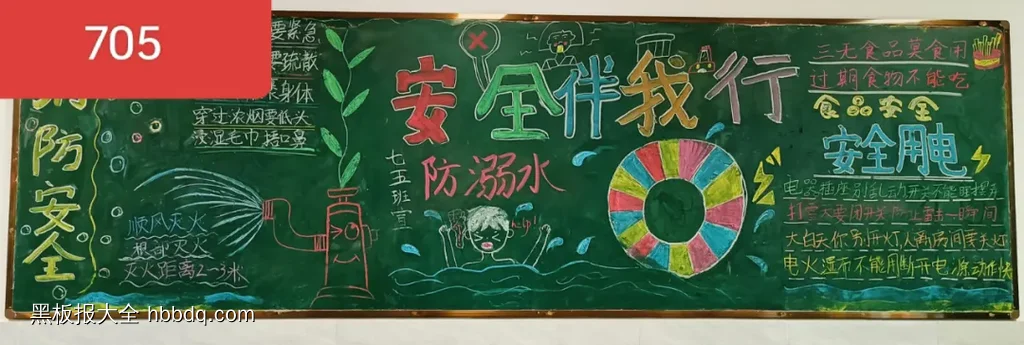 705
要紧急
疏散
身体
穿过浓烟要低头
浸湿毛巾捂口鼻
防安全
顺风灭火
根部灭火
灭火距离2~3米
安全伴我行
七五班宣
防溺水
help!
三无食品莫食用
过期食物不能吃
食品安全
安全用电
电器插座别乱动开关不能
时间
大白天你别开灯人离房间要关灯
电火湿布不能用断开电源
黑板报大全 hbbdq.com